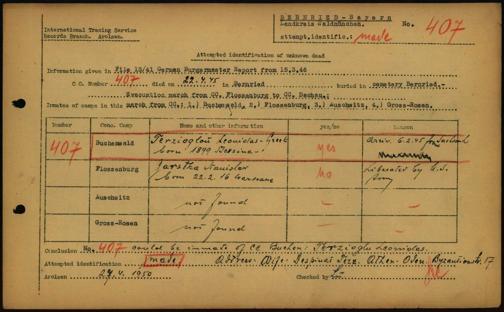 BERNRIED - Bayern
International Tracing Service
Records Branch. Arolsen.
Landkreis Waldmünchen.
No. 407
attempt.identific.: made
Attempted identification of unknown dead
Information given in File 10/41 German Burgermaster Report from 15.3.46
C C Number 407 died on 22.4.45 in Bernried buried in cemetery Bernried.
Evacuation march from CC. Flossenburg to CC. Dachau.
Inmates of camps in this march from CC: 1.) Buchenwald, 2.) Flossenburg, 3.) Auschwitz, 4.) Gross-Rosen.
Number Conc. Camp Name and other information yes/no Reason
407 Buchenwald Terzioglou Leonidas - Greek born 1899 yes Arriv. 6.2.45
Flossenburg Stanislav born 22.2.16 Warszawa no Liberated by U.S. Army
Auschwitz not found - -
Gross-Rosen not found - -
Conclusion No. 407 could be inmate of CC Buchen: Terzioglu Leonidas.
Attempted identification made Address: Wife: Despina Terz. Athen
Arolsen 24.4.1950 Checked by